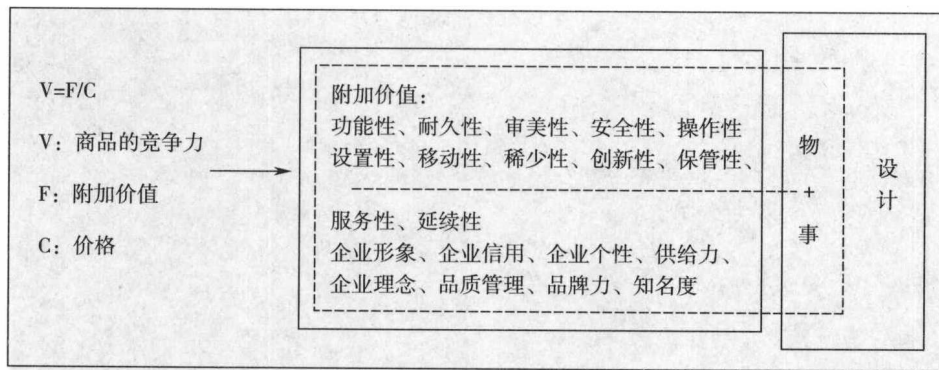 V=F/C
V：商品的竞争力
F：附加价值
C：价格
附加价值：
功能性、耐久性、审美性、安全性、操作性
设置性、移动性、稀少性、创新性、保管性、
服务性、延续性
企业形象、企业信用、企业个性、供给力、
企业理念、品质管理、品牌力、知名度
物
+
事
设
计